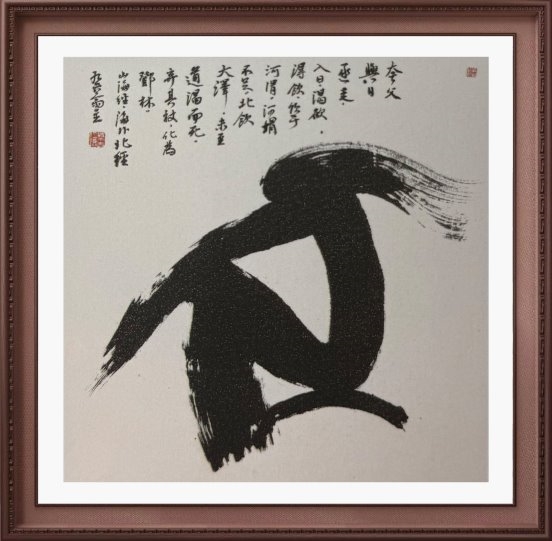 夸父
與日
逐走，
入日，渴欲，
得飲，飲于
河渭，河渭
不足，北飲
大澤，未至
道渴而死，
棄其杖，化為
鄧林，
山海經，海外北經